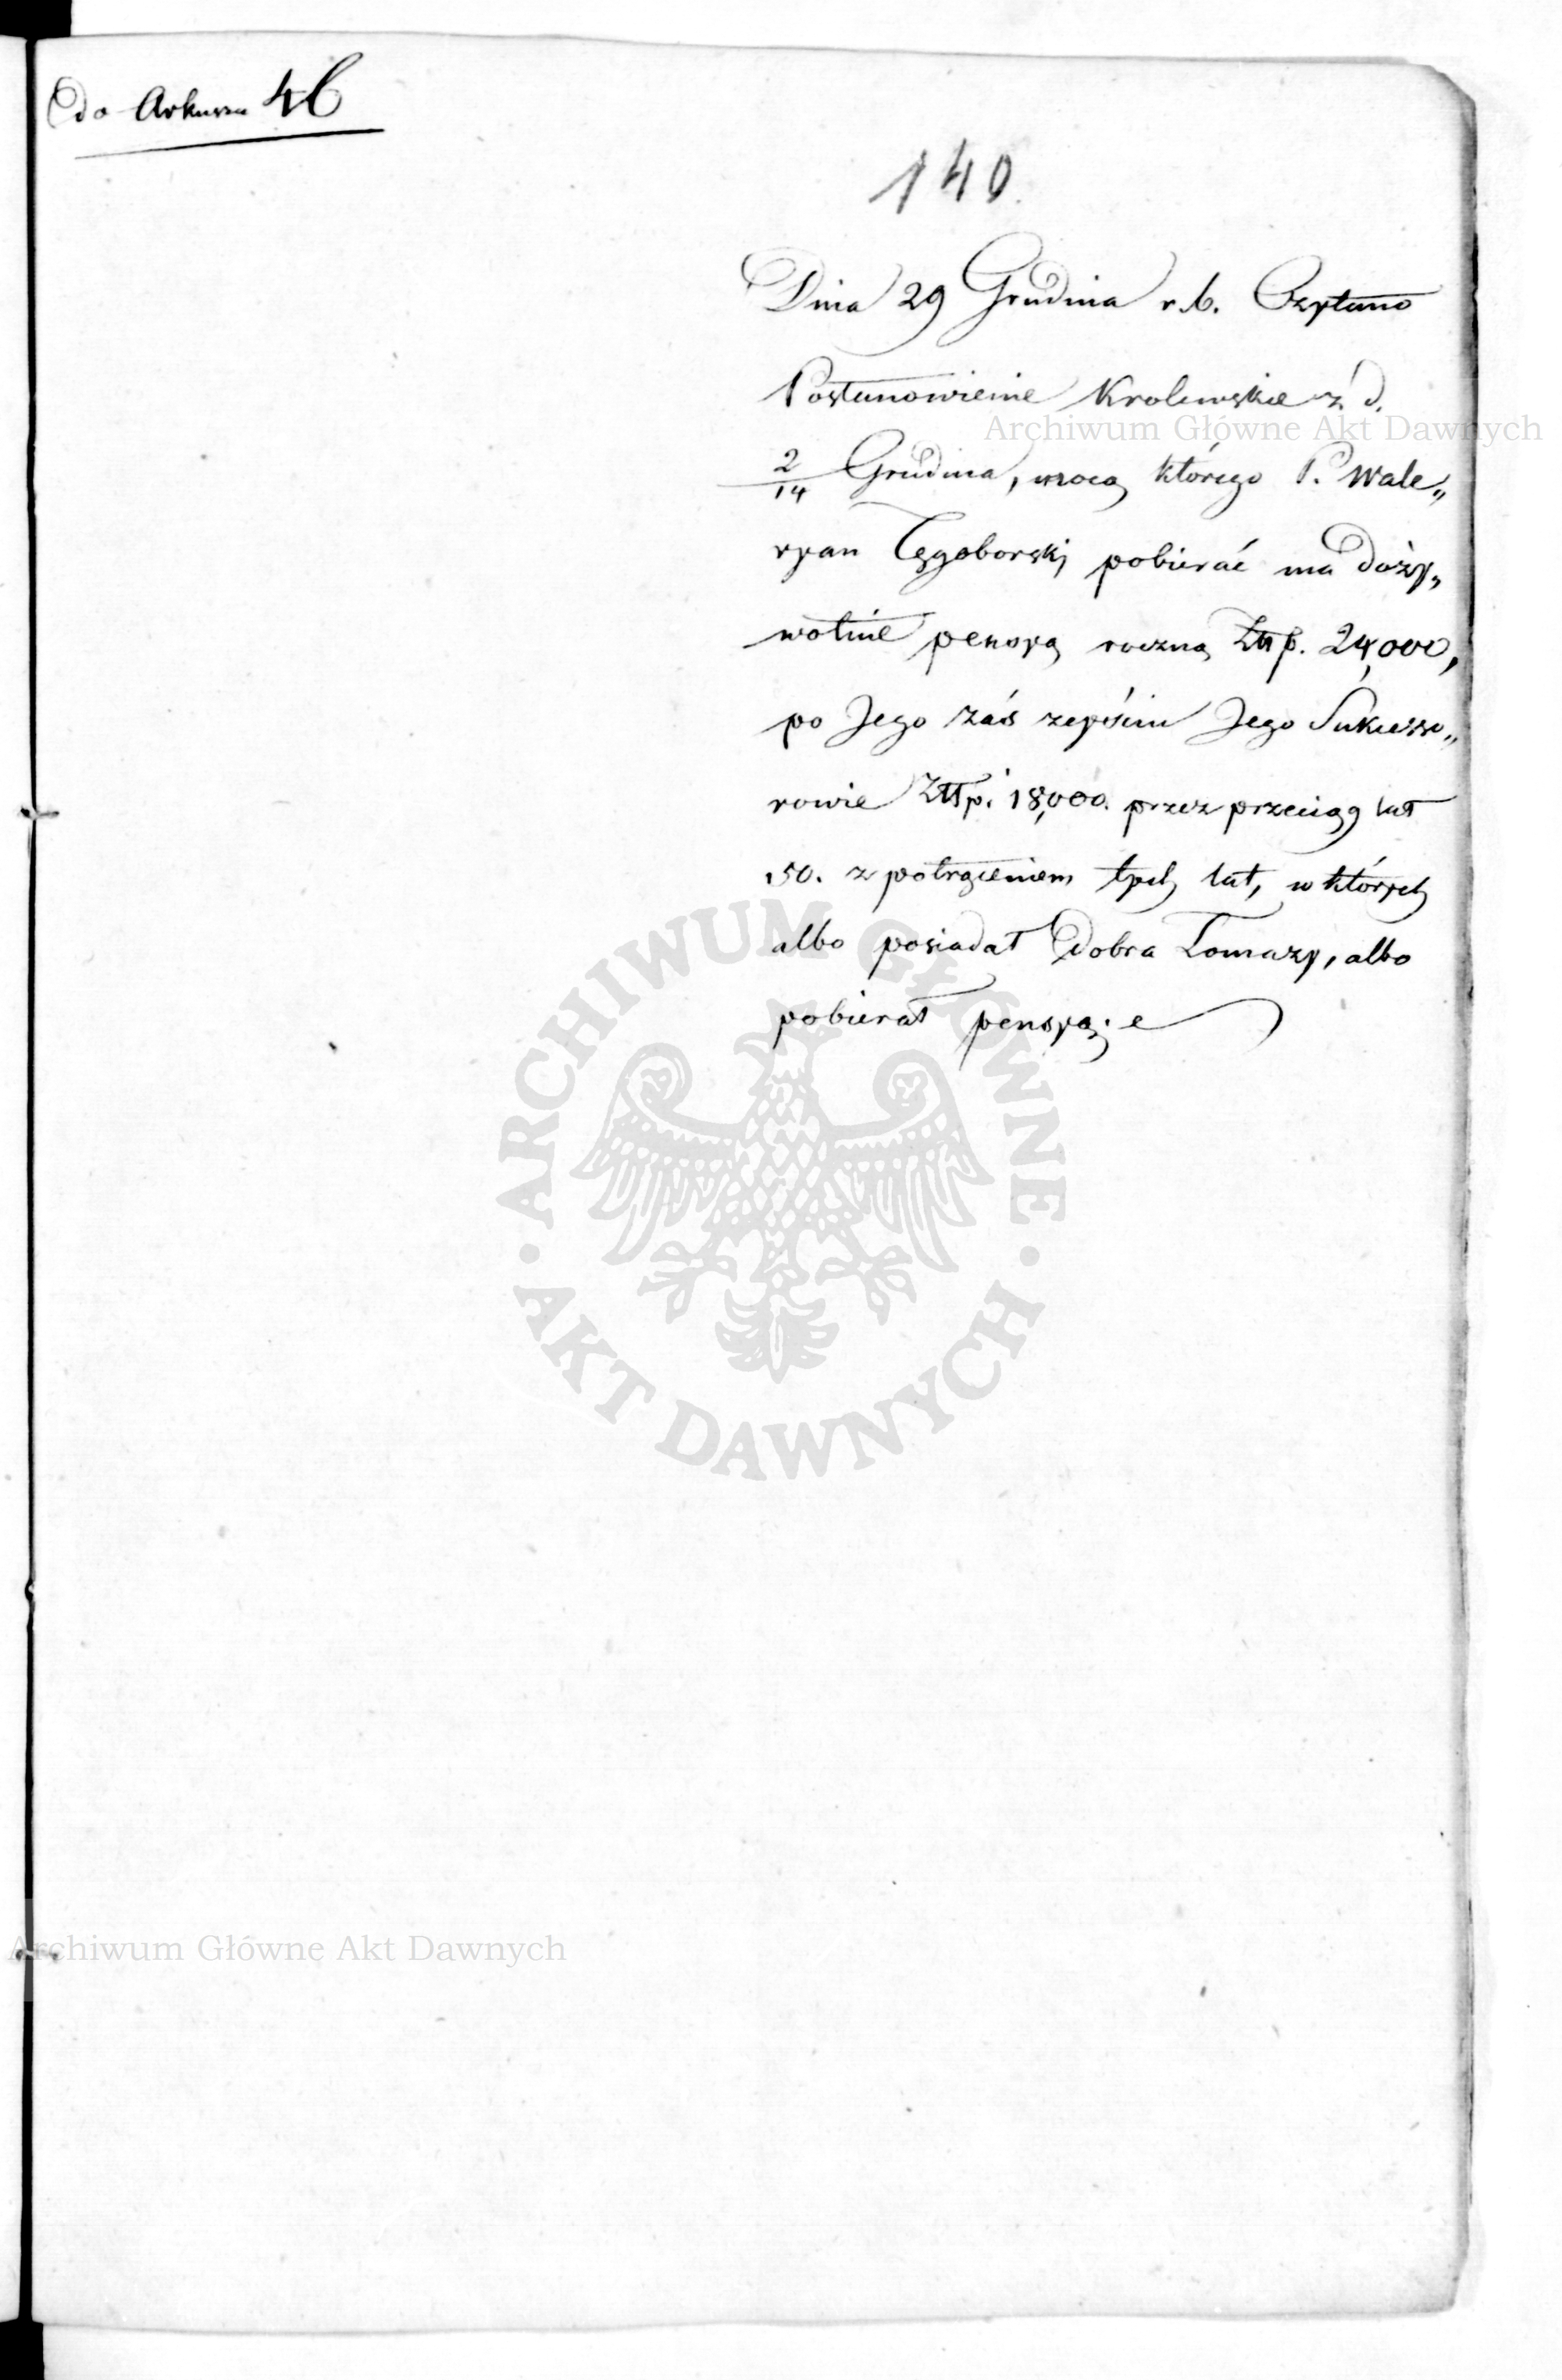 do Arkusza 46
140.
Dnia 29 Grudnia r. b. Czytano
Postanowienie Krolewskie z d.
2/14 Grudnia, mocą którego P. Wale„
ryan Tęgoborski pobierać ma doży„
wotnie pensyą roczną Złłp. 24,000,
po Jego zaś zejściu Jego Sukcesso„
rowie Złłp. 18,000. przez przeciąg lat
50. z potrąceniem tych lat, w których
albo posiadał Dobra Łomazy, albo
pobierał pensyą.
Archiwum Główne Akt Dawnych
ARCHIWUM GŁÓWNE · AKT DAWNYCH ·
Archiwum Główne Akt Dawnych